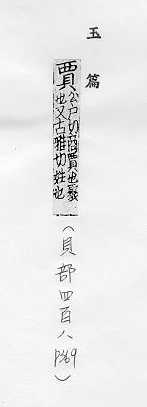 玉篇
賈公戶切商賈也賣
也又古雅切姓也
(貝部四百八 P369)